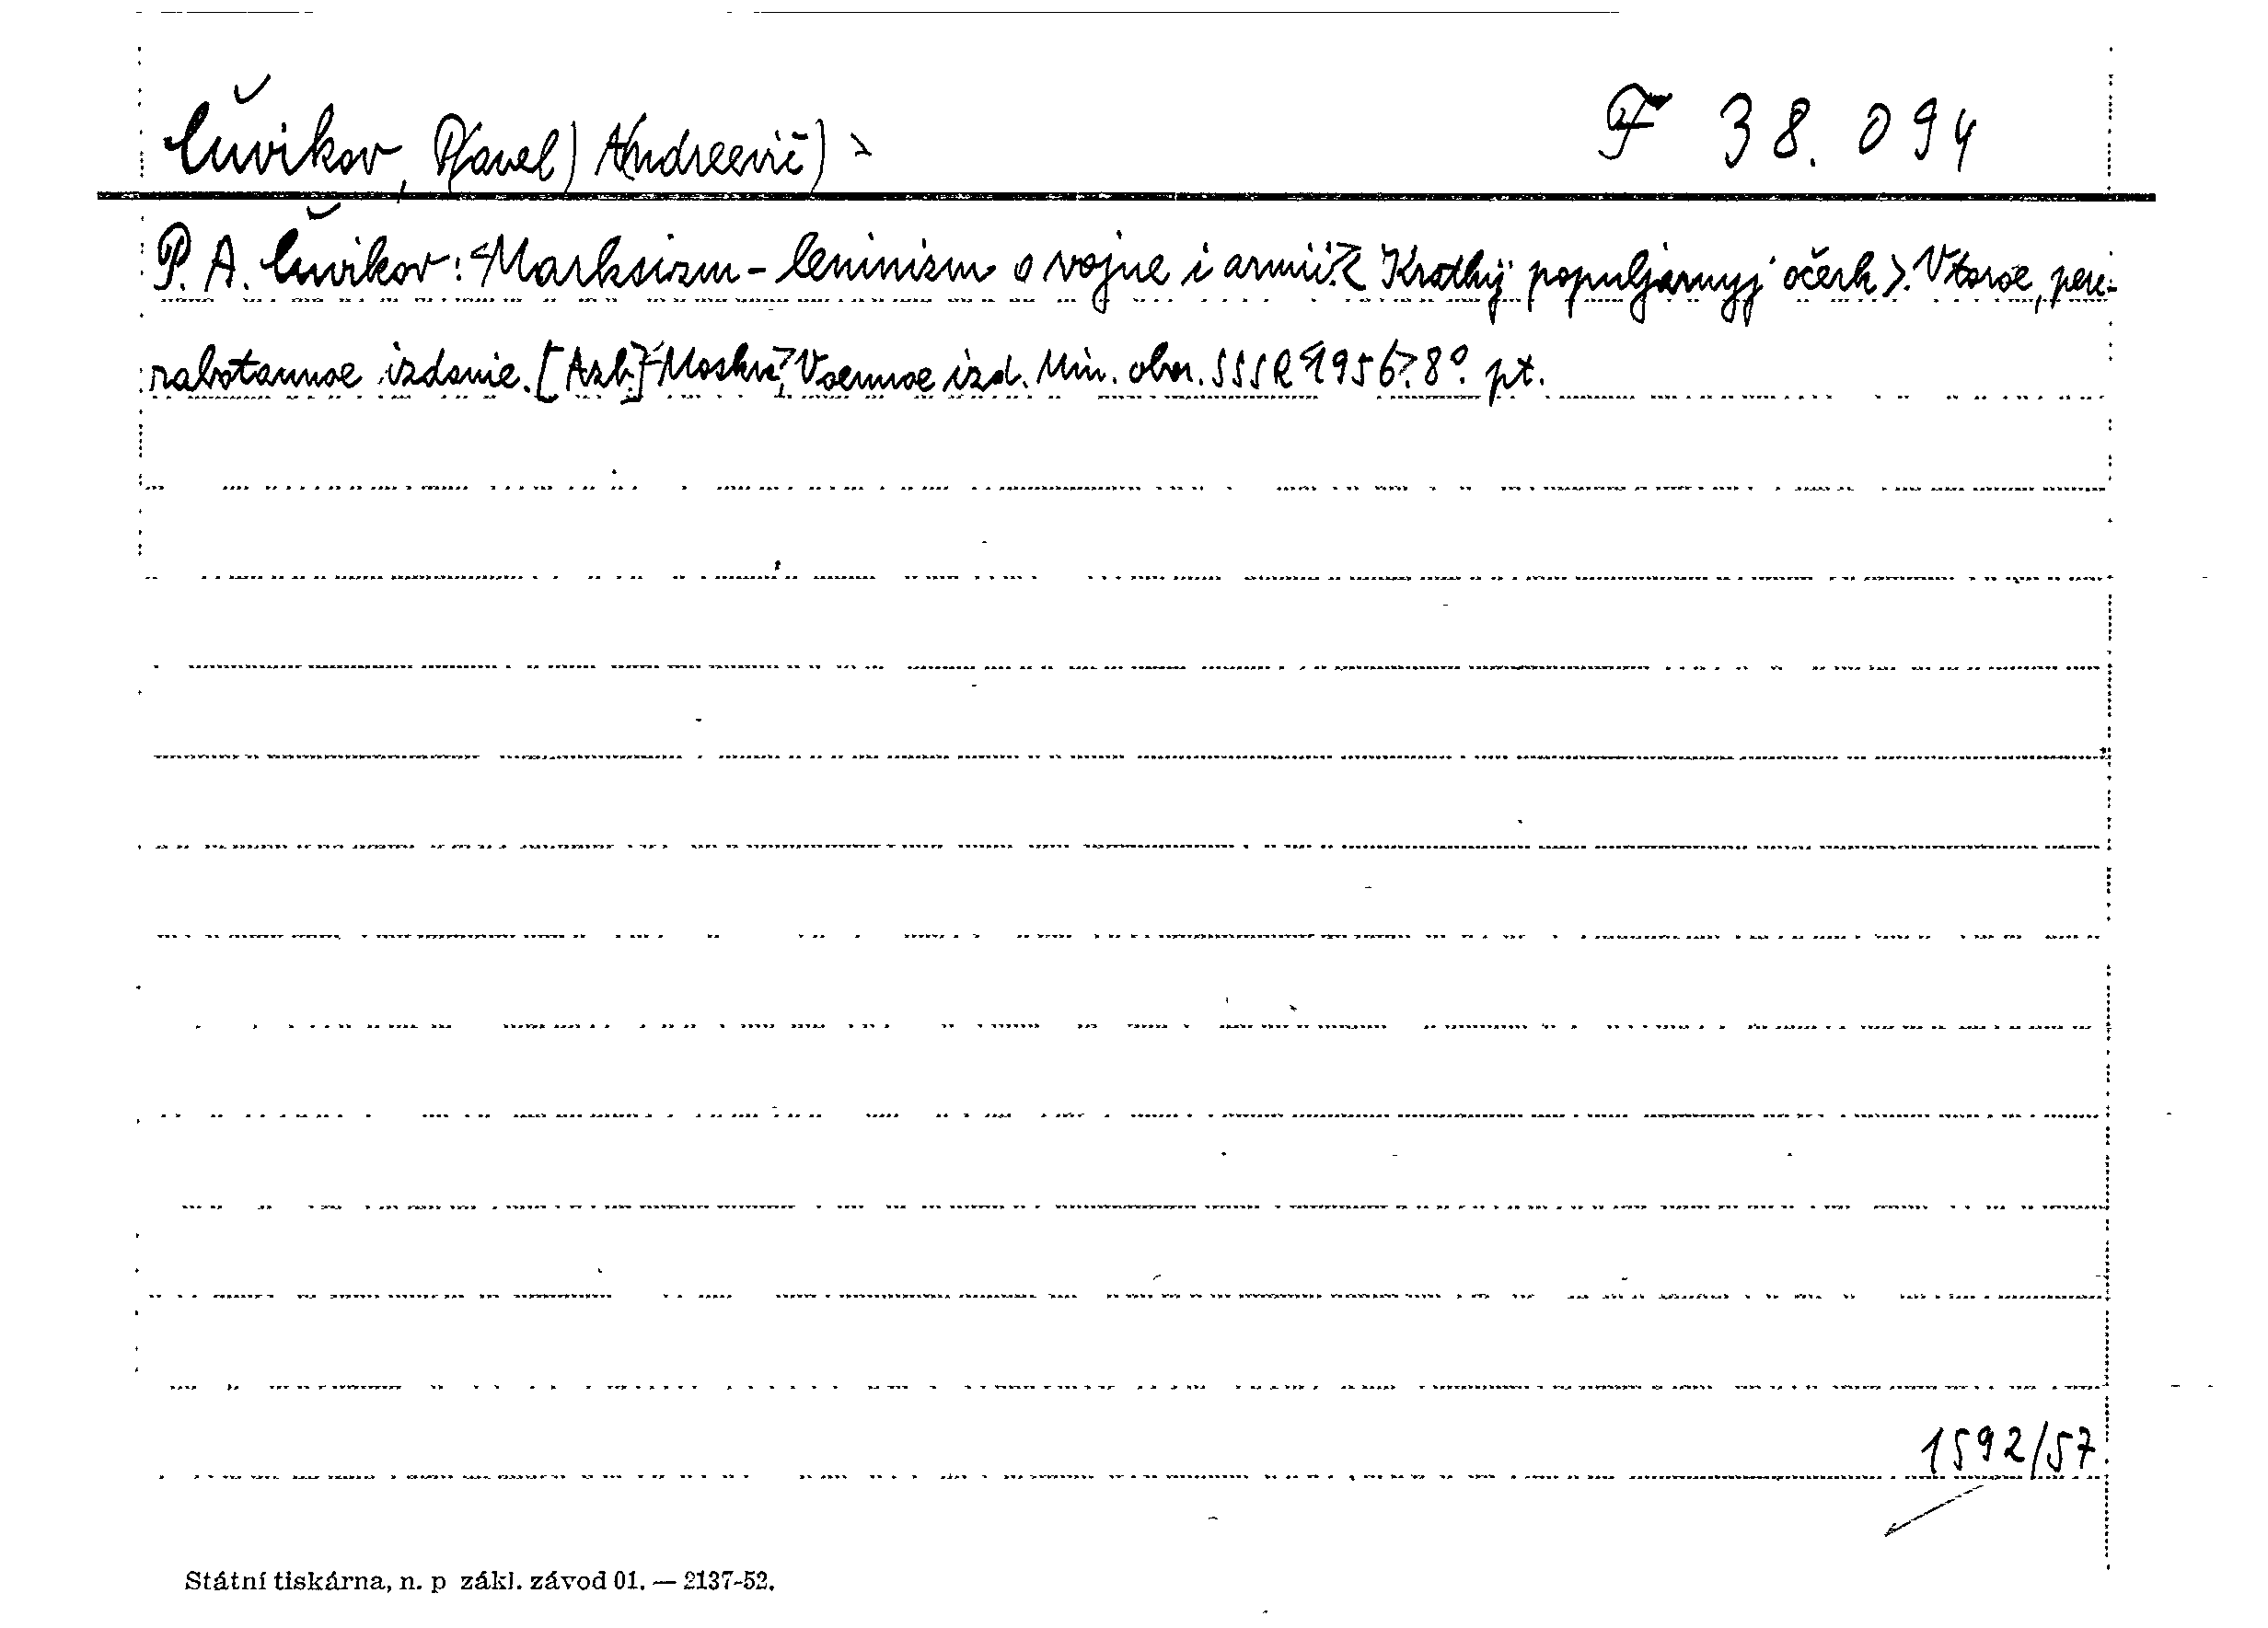 Čuvikov, P(avel) A(ndreevič)
F 38.094
P. A. Čuvikov: <Marksizm-leninizm o vojne i armii.> <Kratkij populjarnyj očerk>. Vtoroe, pere-
rabotannoe izdanie. [Azb.] <Moskva>, Voennoe izd. Min. obor. SSSR <1956>. 8°. pt.
1592/57
Státní tiskárna, n. p zákl. závod 01. — 2137-52.